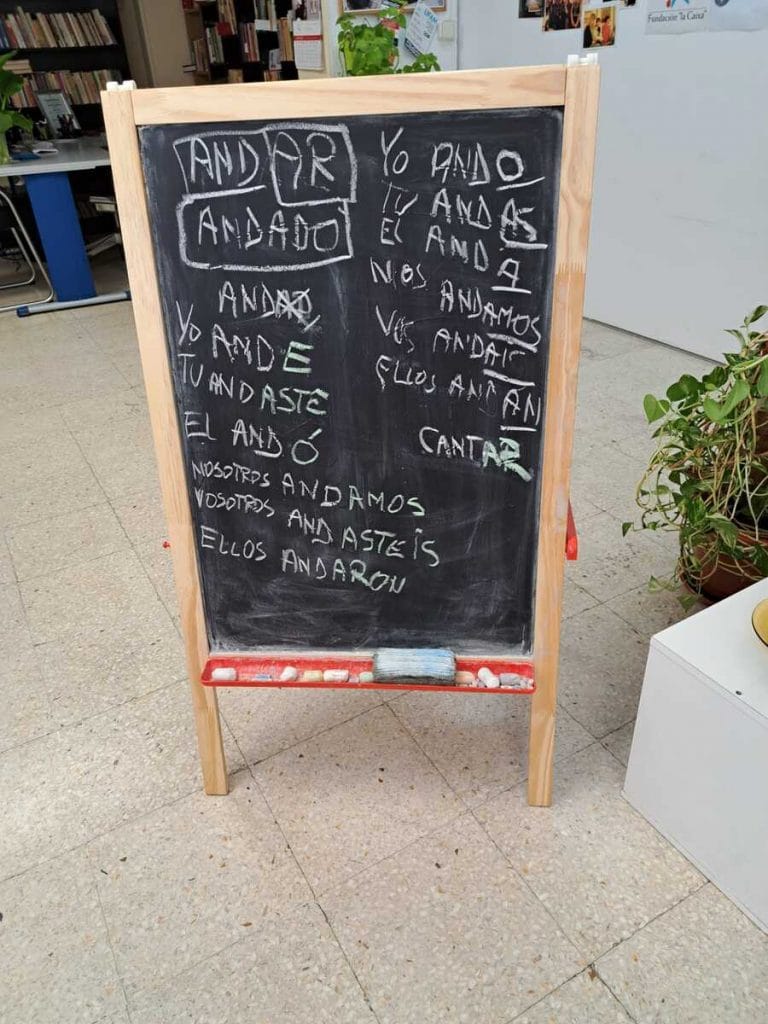 Fundación "la Caixa"
ANDAR
ANDADO
ANDAD
YO ANDE
TU ANDASTE
EL ANDÓ
NOSOTROS ANDAMOS
VOSOTROS ANDASTEÍS
ELLOS ANDARON
YO ANDO
TU ANDAS
EL ANDA
NOS ANDAMOS
VOS ANDAIS
ELLOS ANDAN
CANTAR